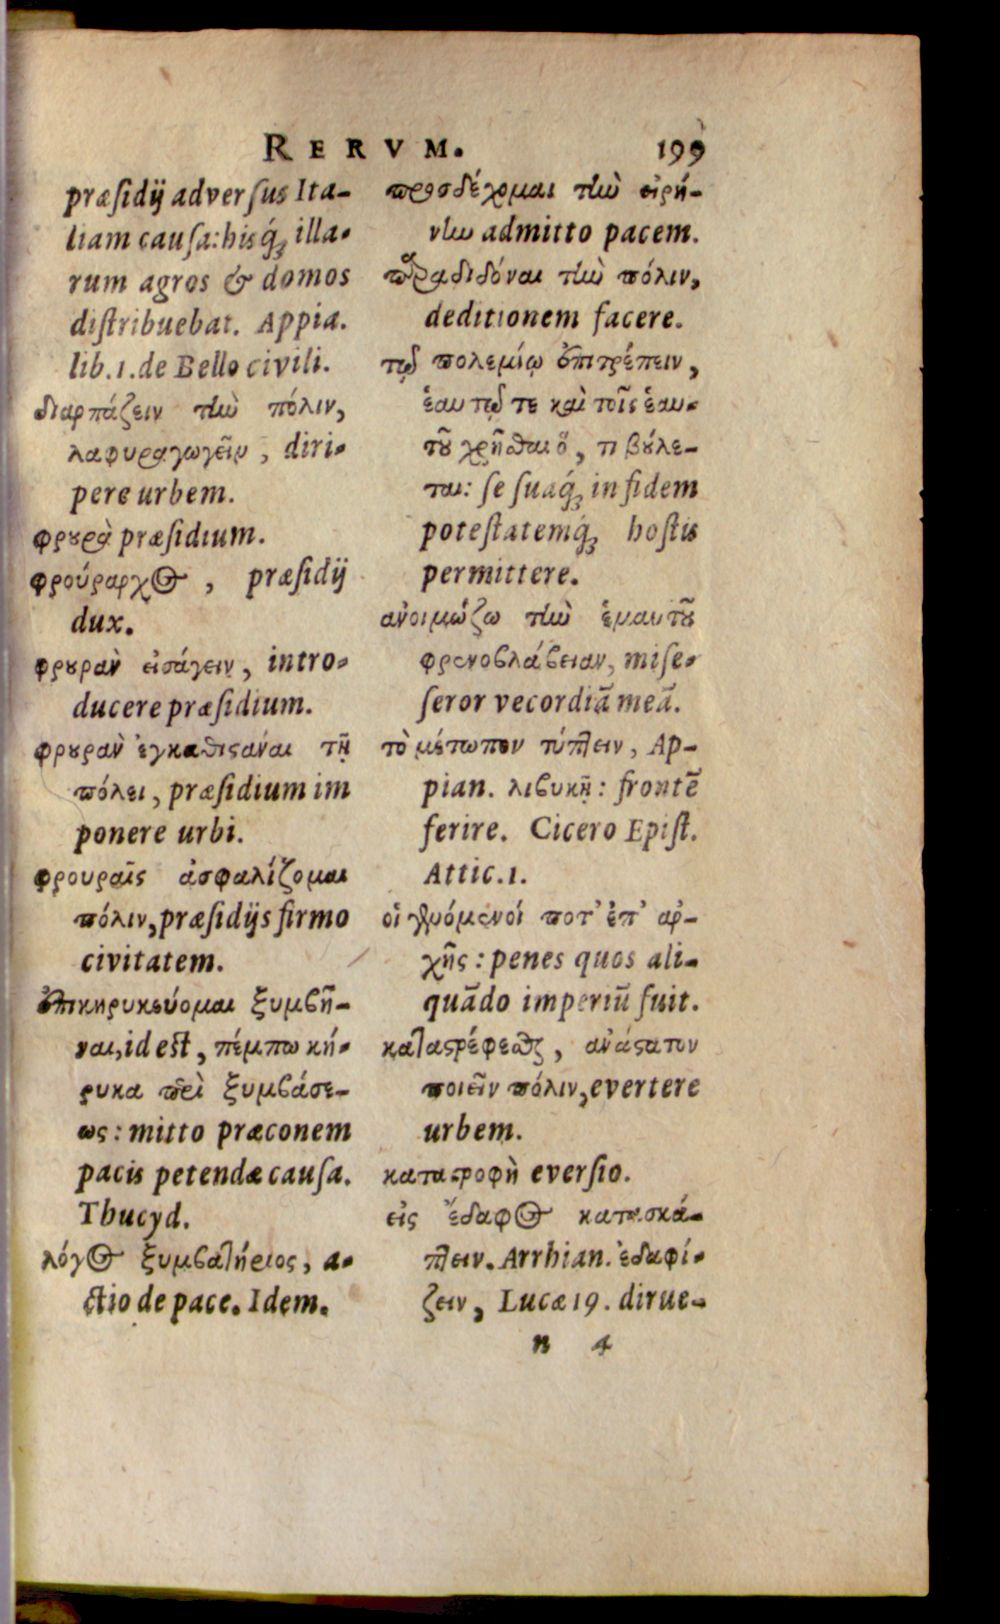 RERVM. 199
præsidij adversus Ita-
liam causa: hisq́; illa-
rum agros & domos
distribuebat. Appia.
lib. 1. de Bello civili.
διαρπάζειν τὴν πόλιν,
λαφυραγωγεῖν, diri-
pere urbem.
φρουρὰ præsidium.
φρούραρχος, præsidij
dux.
φρουρὰν εἰσάγειν, intro-
ducere præsidium.
φρουρὰν ἐγκαθιστάναι τῇ
πόλει, præsidium im
ponere urbi.
φρουραῖς ἀσφαλίζομαι
πόλιν, præsidijs firmo
civitatem.
ἐπικηρυκεύομαι ξυμβῆ-
ναι, id est, πέμπω κή-
ρυκα περὶ ξυμβάσε-
ως: mitto præconem
pacis petendæ causa.
Thucyd.
λόγος ξυμβατήριος, a-
ctio de pace. Idem.
προσδέχομαι τὴν εἰρή-
νην admitto pacem.
παραδιδόναι τὴν πόλιν,
deditionem facere.
τῷ πολεμίῳ ἐπιτρέπειν,
ἑαυτῷ τε καὶ τοῖς ἑαυ-
τοῦ χρῆσθαι ὅ, τι βούλε-
ται: se suaq́; in fidem
potestatemq́; hostis
permittere.
ἀνοιμώζω τὴν ἐμαυτοῦ
φρενοβλάβειαν, mise-
seror vecordiã meã.
τὸ μέτωπον τύπτειν, Ap-
pian. λιβυκῇ: frontẽ
ferire. Cicero Epist.
Attic. 1.
οἱ γενόμενοί ποτ’ ἐπ’ αρ-
χῆς: penes quos ali-
quãdo imperiũ fuit.
καταστρέφεσθαι, ἀνάστατον
ποιεῖν πόλιν, evertere
urbem.
καταστροφὴ eversio.
εἰς ἔδαφος κατασκά-
πτειν. Arrhian. ἐδαφί-
ζειν, Lucæ 19. dirue-
n 4